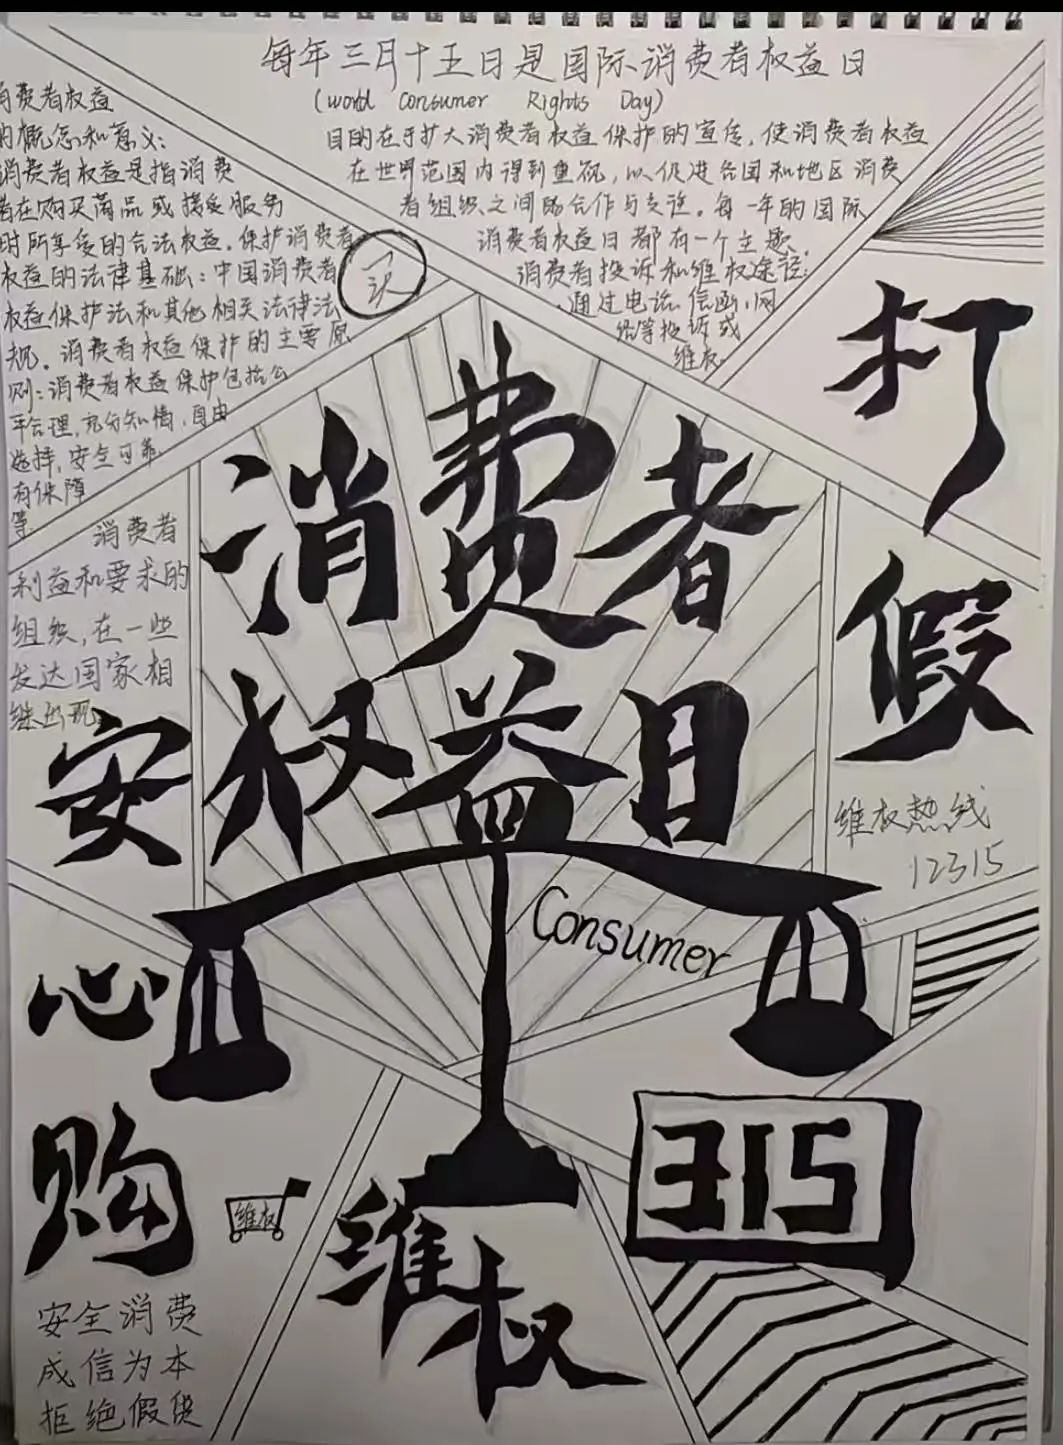 每年三月十五日是国际消费者权益日
(world Consumer Rights Day)
目的在于扩大消费者权益保护的宣传,使消费者权益
在世界范围内得到重视,以促进各国和地区消费
者组织之间的合作与交流。每一年的国际
消费者权益日都有一个主题
消费者投诉和维权途径:
通过电话.信函,网
络等投诉或
维权
消费者权益
的概念和意义:
消费者权益是指消费
者在购买商品或接受服务
时所享受的合法权益.保护消费者
权益的法律基础:中国消费者
权益保护法和其他相关法律法
规。消费者权益保护的主要原
则:消费者权益保护包括公
平合理,充分知情,自由
选择,安全可靠
有保障
等
消费者
利益和要求的
组织,在一些
发达国家相
继出现
打假
消费者
权益日
安心购
维权热线
12315
Consumer
315
维权
维权
安全消费
成信为本
拒绝假货